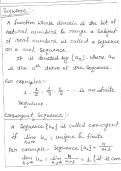 Sequence :-
A function whose domain is the set of
natural numbers & range a subset
of real numbers is called a sequence
or a real sequence
It is denoted by {un}, where un
is the nth term of the sequence.
For examples:-
is an infinite
sequence.
Convergent Sequence :-
A sequence {un} is called convergent
if lim un = unique & finite
n→∞
For example: Sequence {un} =
lim un = lim
it is con